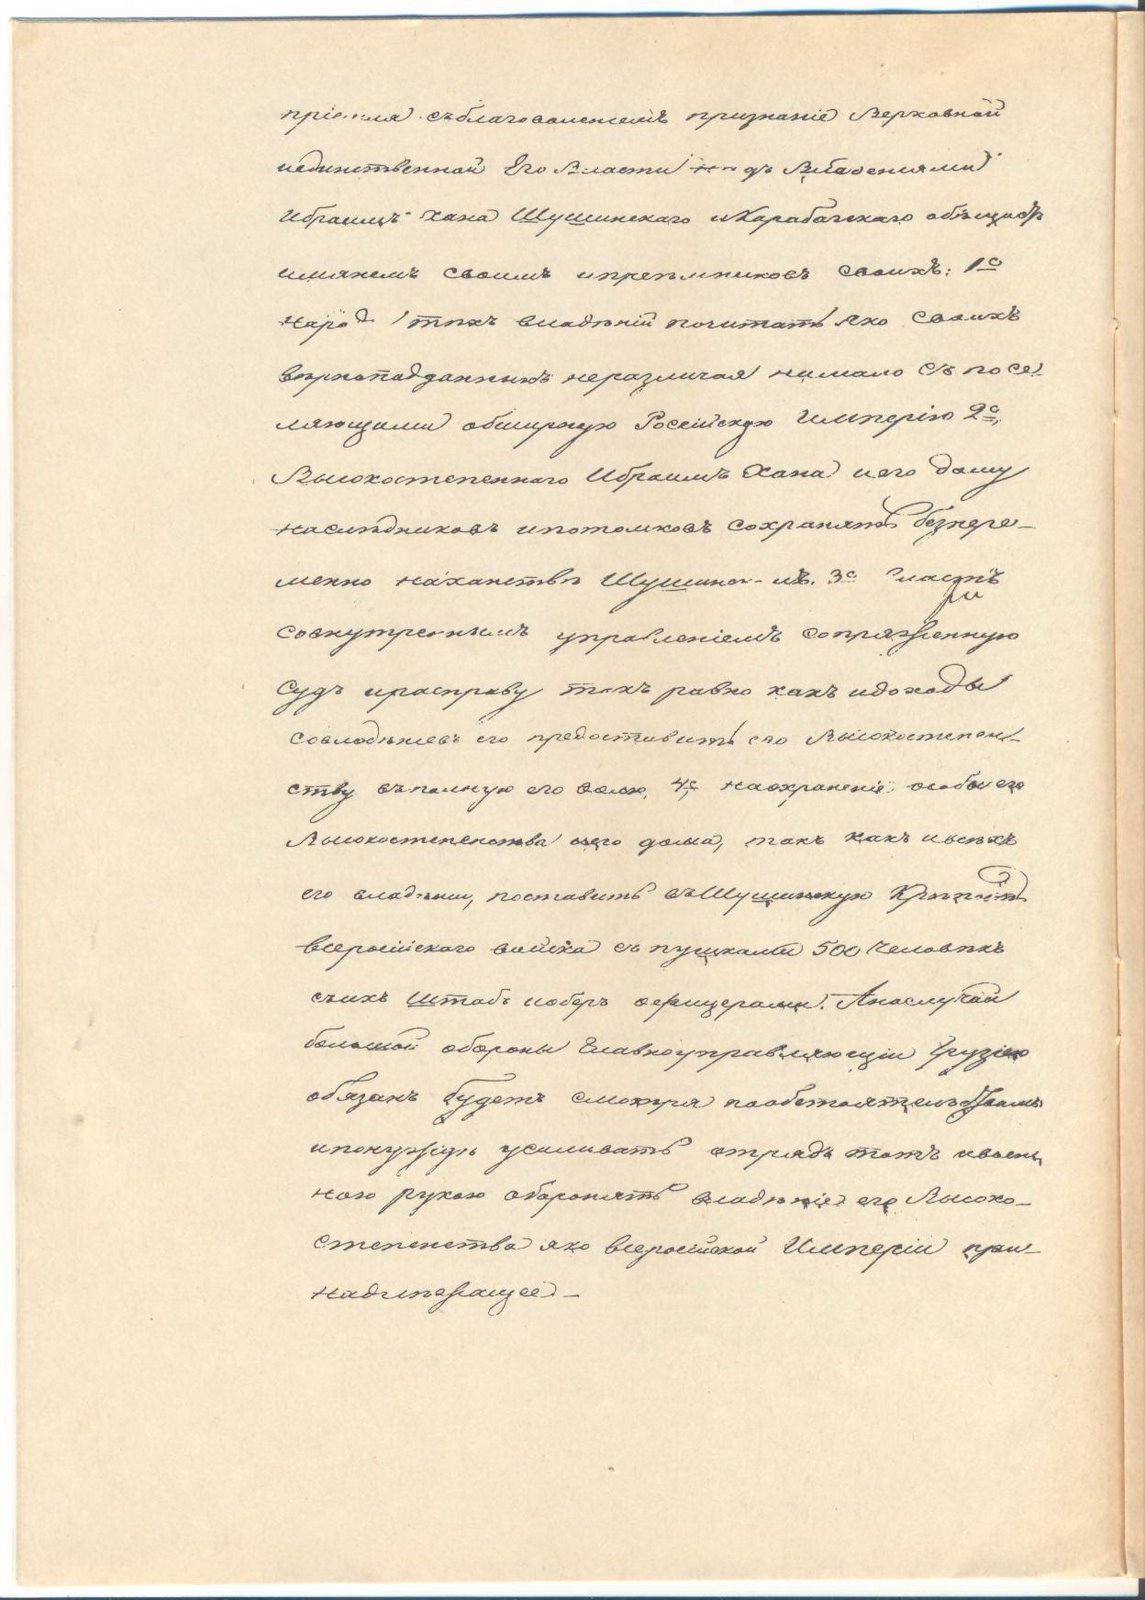 пріемля съблаговоленіемъ признаніе Верховной
иединственной Его Власти надъ Владеніями
Ибраимъ хана Шушинскаго иКарабагскаго объщаетъ
имянемъ своимъ ипреемниковъ своихъ: 1е
народы тѣхъ владѣній почитать яко своихъ
вѣрноподданныхъ неразличая нимало съ насе-
ляющими обширную Россійскую Имперію 2е,
Высокостепеннаго Ибраимъ Хана иего дому
наслѣдниковъ ипотомковъ сохранять безпере-
менно наханствѣ Шушинскомъ. 3е Власть
совнутреннымъ управленіемъ сопряженную
судъ ирасправу такъ равно какъ идоходы
совладѣніевъ его предоставить его Высокостепен-
ству въполную его волю, 4е, наохраненіе особы его
Высокостепенства иего дома, такъ какъ ивсѣхъ
его владѣніи, поставить въШушинскую Крѣпость
всеросійскаго войска съ пушками 500 человѣкъ
съихъ штабъ иоберъ офицерами. Анаслучай
большой обороны Главноуправляющіи Грузіею
обязанъ будетъ смотря пообстоятельствамъ
ипонуждѣ усиливать отрядъ тотъ ивоен-
ною рукою оборонять владѣніе его Высоко-
степенства яко всеросійской Имперіи при-
надлежащее. –